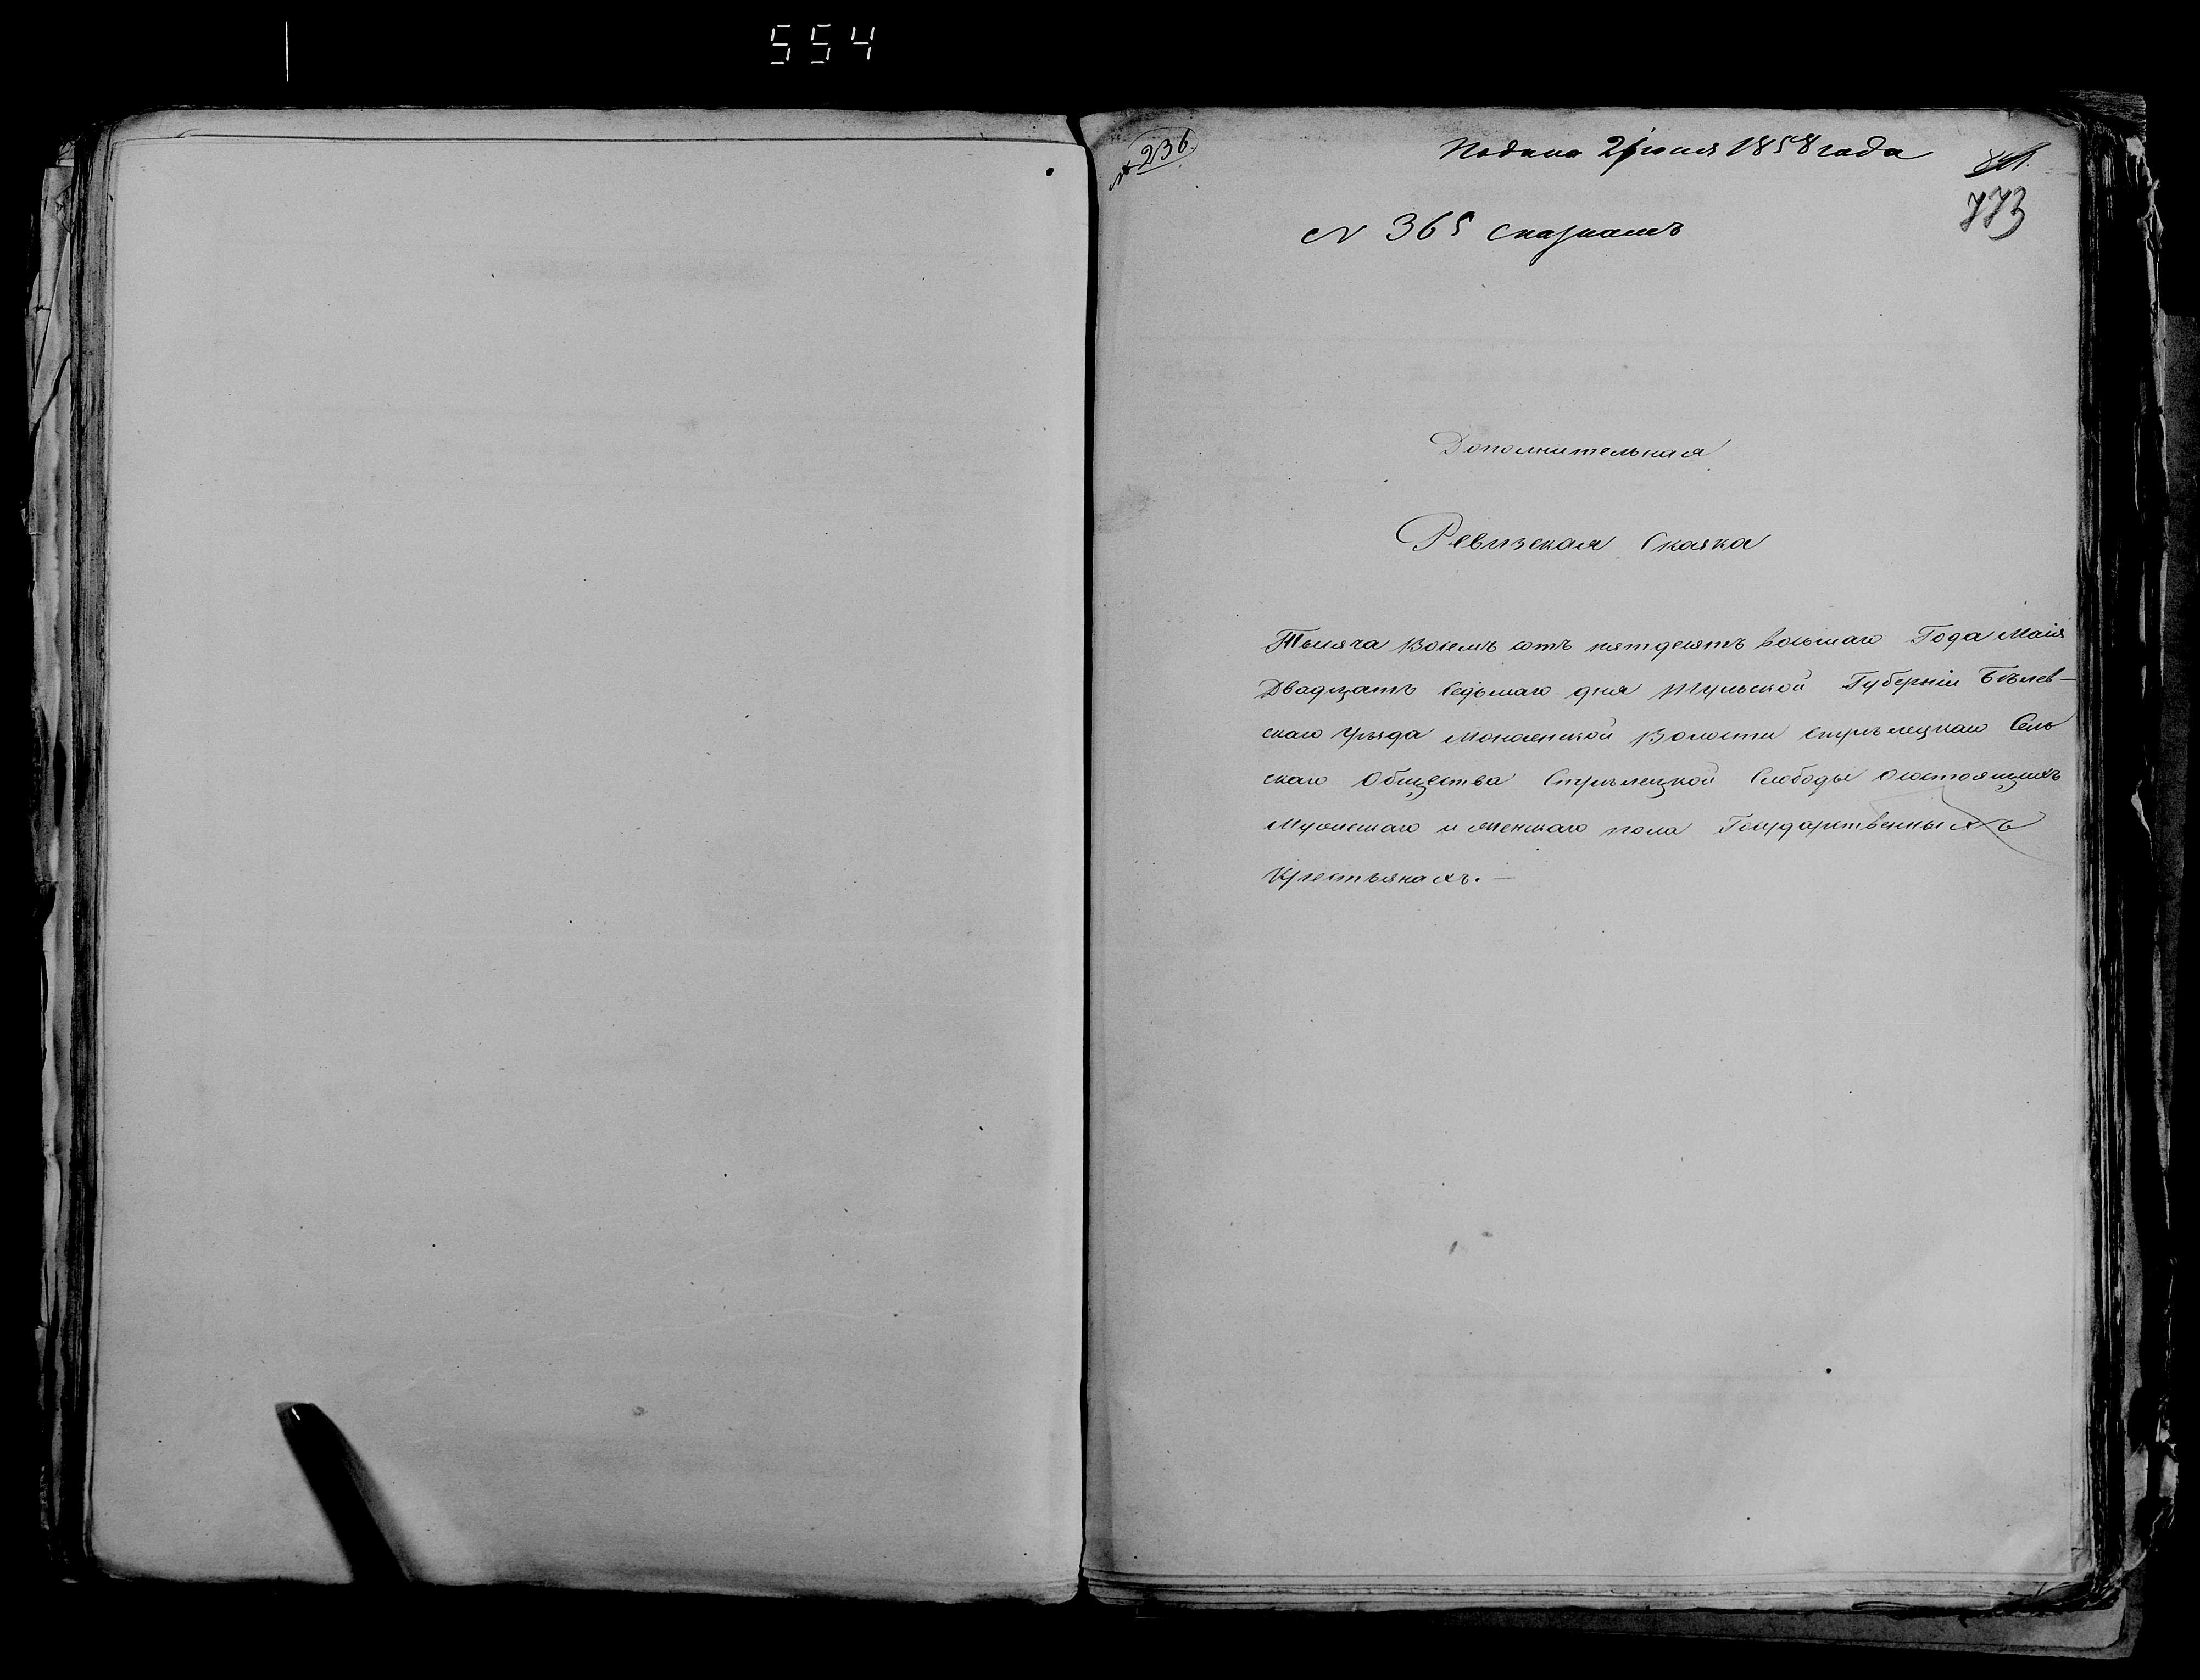 554
№ 236.
Подана 2 июня 1858 года
773
N 365
Дополнительная
Ревизская Сказка
Тысяча Восемь сотъ пятдесятъ восьмаго Года Маія
Двадцать седьмаго дня Тульской Губерніи Бѣлев-
скаго Уѣзда Монаенской Волости Стрѣлецкаго Сель
скаго Общества Стрѣлецкой Слободы О состоящихъ
Мужескаго и женскаго пола Государственныхъ
Крестьянахъ.—